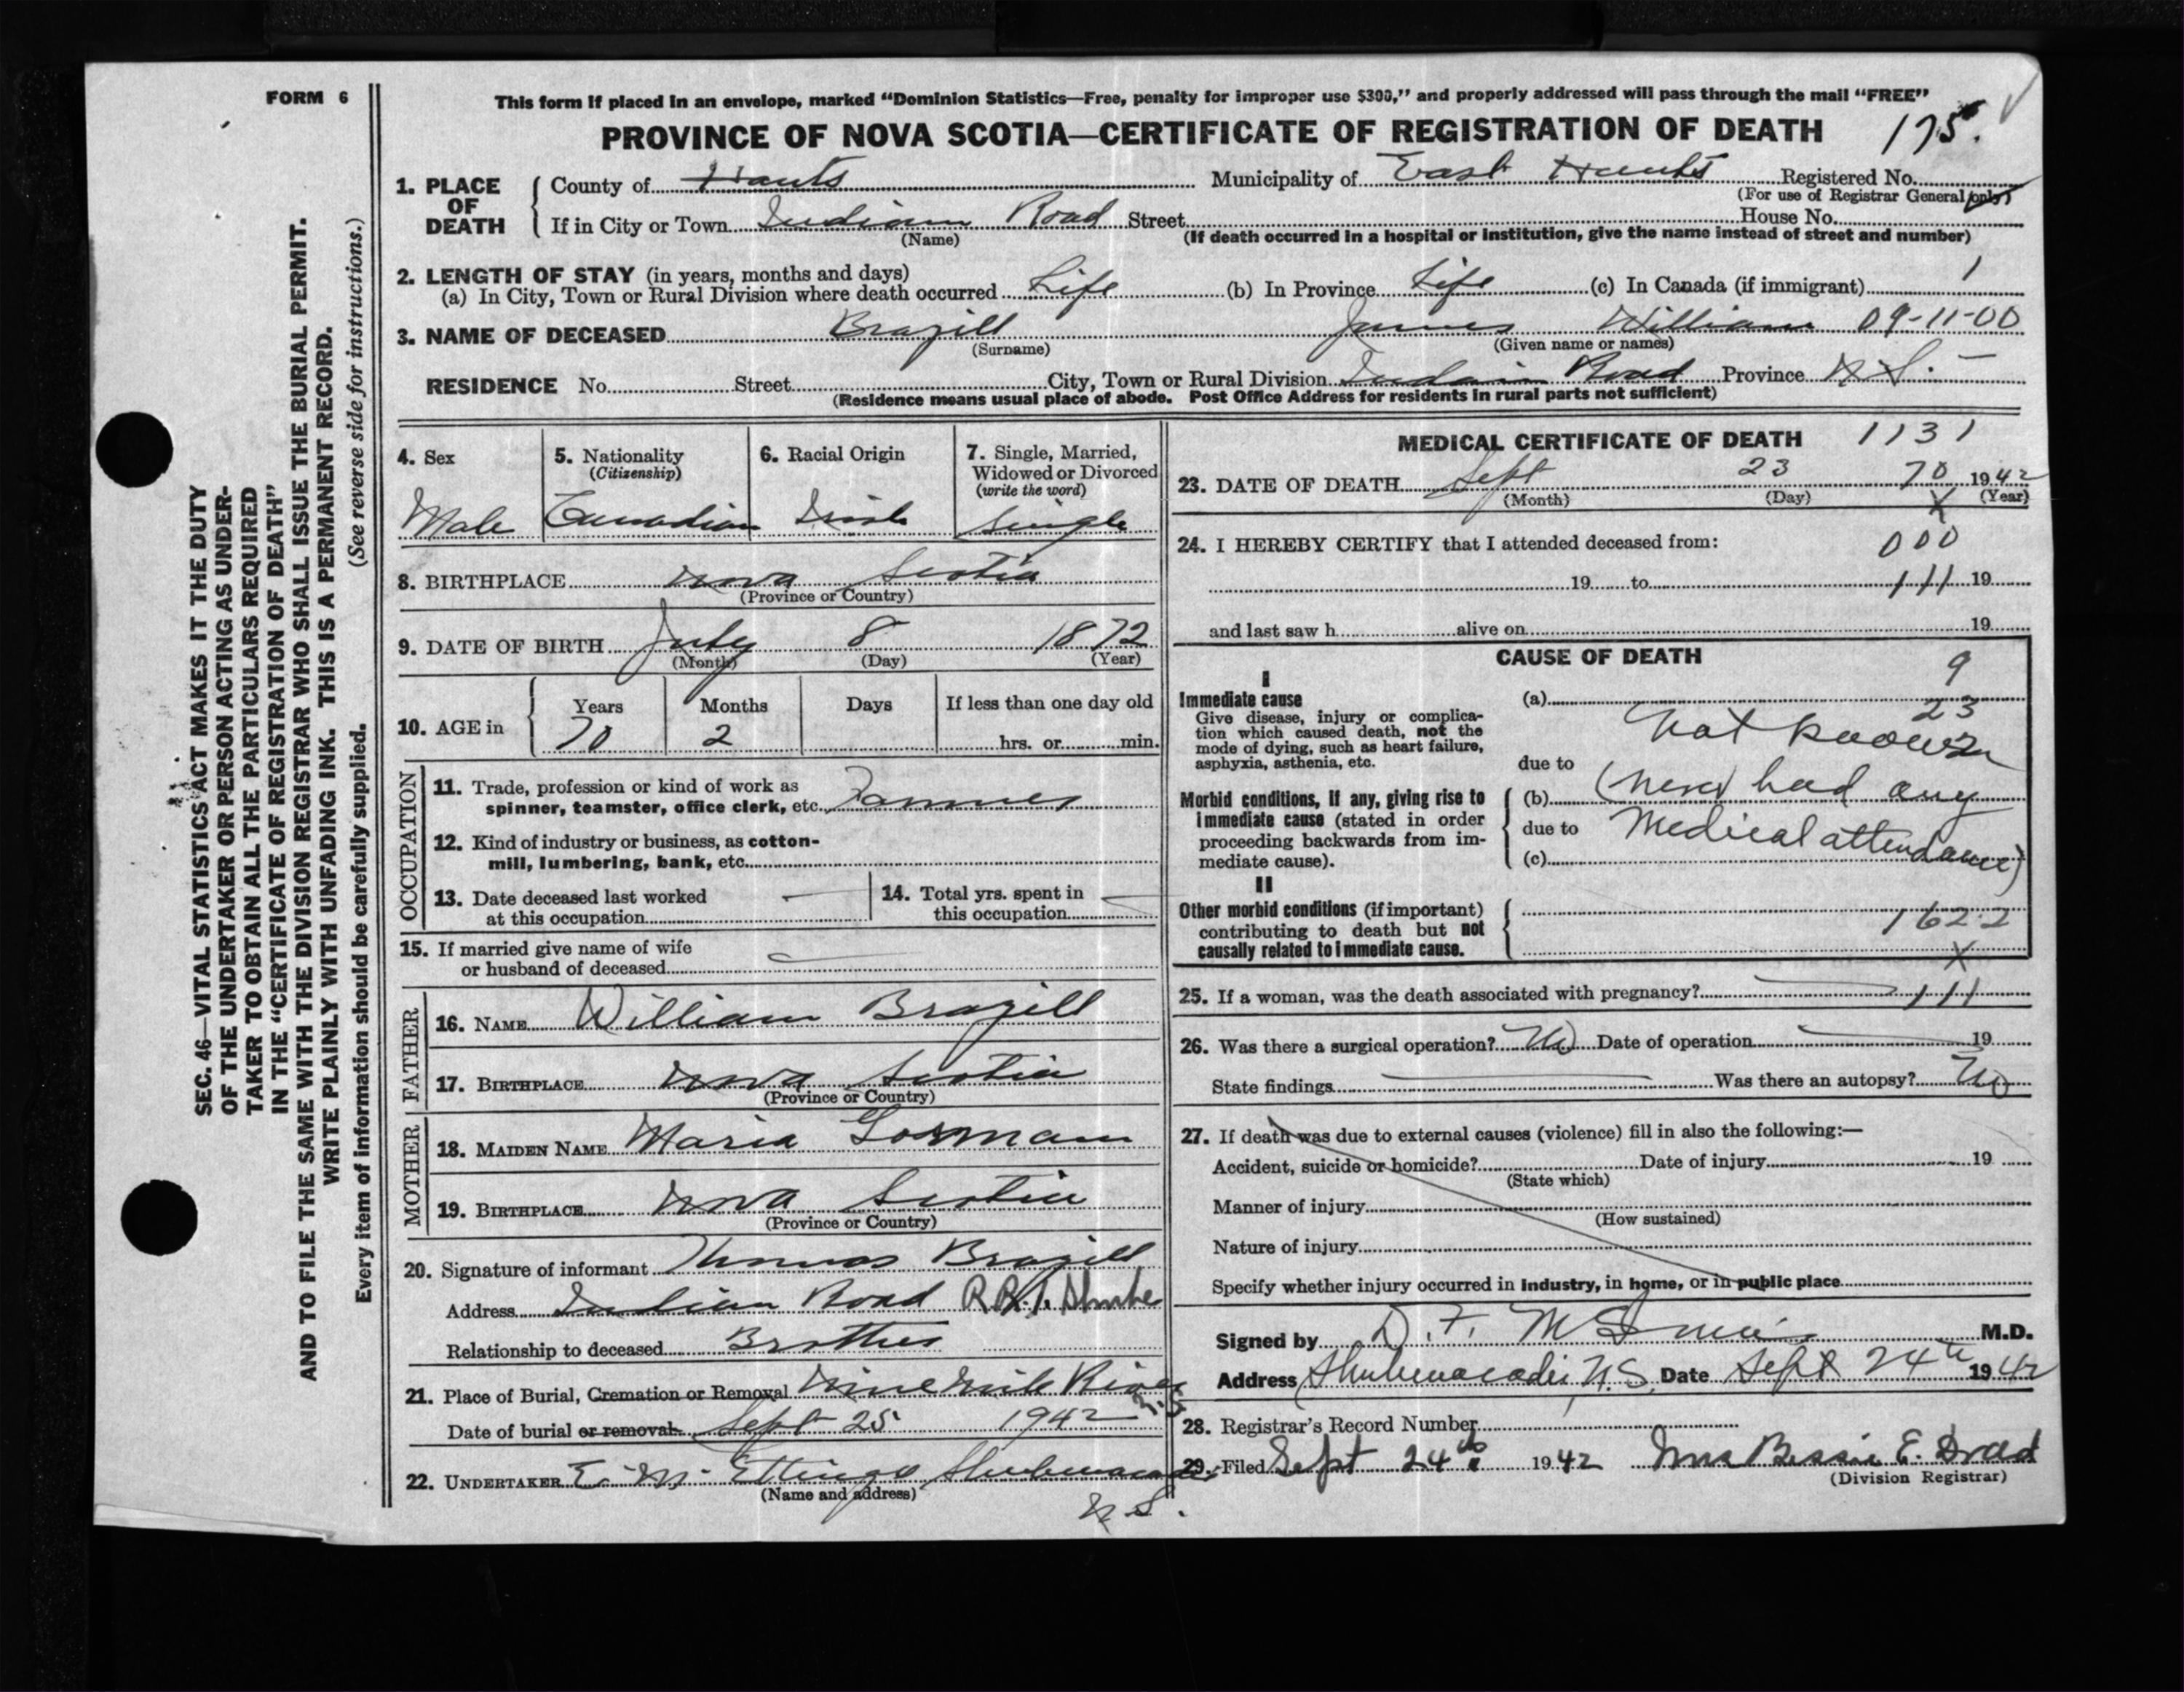 FORM 6
This form if placed in an envelope, marked “Dominion Statistics—Free, penalty for improper use $300,” and properly addressed will pass through the mail “FREE”
PROVINCE OF NOVA SCOTIA—CERTIFICATE OF REGISTRATION OF DEATH 175.
1. PLACE OF DEATH
County of Hants Municipality of East Hants Registered No.
(For use of Registrar General only)
If in City or Town Indian Road Street House No.
(Name) (If death occurred in a hospital or institution, give the name instead of street and number)
2. LENGTH OF STAY (in years, months and days)
(a) In City, Town or Rural Division where death occurred Life (b) In Province Life (c) In Canada (if immigrant) 1
3. NAME OF DECEASED Brazill James William 09-11-00
(Surname) (Given name or names)
RESIDENCE No. Street City, Town or Rural Division Indain Road Province N.S.
(Residence means usual place of abode. Post Office Address for residents in rural parts not sufficient)
4. Sex
Male
5. Nationality
(Citizenship)
Canadian
6. Racial Origin
Irish
7. Single, Married,
Widowed or Divorced
(write the word)
Single
8. BIRTHPLACE Nova Scotia
(Province or Country)
9. DATE OF BIRTH July 8 1872
(Month) (Day) (Year)
10. AGE in
Years Months Days If less than one day old
70 2 hrs. or min.
OCCUPATION
11. Trade, profession or kind of work as
spinner, teamster, office clerk, etc. Farmer
12. Kind of industry or business, as cotton-
mill, lumbering, bank, etc.
13. Date deceased last worked
at this occupation
14. Total yrs. spent in
this occupation
15. If married give name of wife
or husband of deceased
FATHER
16. NAME William Brazill
17. BIRTHPLACE Nova Scotia
(Province or Country)
MOTHER
18. MAIDEN NAME Maria Gorman
19. BIRTHPLACE Nova Scotia
(Province or Country)
20. Signature of informant Thomas Brazill
Address Indian Road R.R.1. Shube
Relationship to deceased Brother
21. Place of Burial, Cremation or Removal Nine Mile River
N.S.
Date of burial or removal Sept 25 1942
22. UNDERTAKER E. M. Ettinger Shubenacadie
(Name and address)
N.S.
MEDICAL CERTIFICATE OF DEATH 1131
23. DATE OF DEATH Sept 23 70 1942
(Month) (Day) X (Year)
24. I HEREBY CERTIFY that I attended deceased from: 000
19 to 111 19
and last saw h alive on 19
CAUSE OF DEATH 9
I
Immediate cause
Give disease, injury or complica-
tion which caused death, not the
mode of dying, such as heart failure,
asphyxia, asthenia, etc.
(a) 23
Not known
due to
Morbid conditions, if any, giving rise to
immediate cause (stated in order
proceeding backwards from im-
mediate cause).
(b) (never had any
due to Medical attendance)
(c)
II
Other morbid conditions (if important)
contributing to death but not
causally related to immediate cause.
162.2
X
25. If a woman, was the death associated with pregnancy? 111
26. Was there a surgical operation? No Date of operation 19
State findings Was there an autopsy? No
27. If death was due to external causes (violence) fill in also the following:—
Accident, suicide or homicide? Date of injury 19
(State which)
Manner of injury
(How sustained)
Nature of injury
Specify whether injury occurred in industry, in home, or in public place
Signed by D. F. M.D.
Address Shubenacadie, N.S. Date Sept 24th 1942
28. Registrar's Record Number
29. Filed Sept 24th 1942 Mrs Bessie E.
(Division Registrar)
SEC. 46—VITAL STATISTICS ACT MAKES IT THE DUTY
OF THE UNDERTAKER OR PERSON ACTING AS UNDER-
TAKER TO OBTAIN ALL THE PARTICULARS REQUIRED
IN THE “CERTIFICATE OF REGISTRATION OF DEATH”
AND TO FILE THE SAME WITH THE DIVISION REGISTRAR WHO SHALL ISSUE THE BURIAL PERMIT.
WRITE PLAINLY WITH UNFADING INK. THIS IS A PERMANENT RECORD.
Every item of information should be carefully supplied. (See reverse side for instructions.)